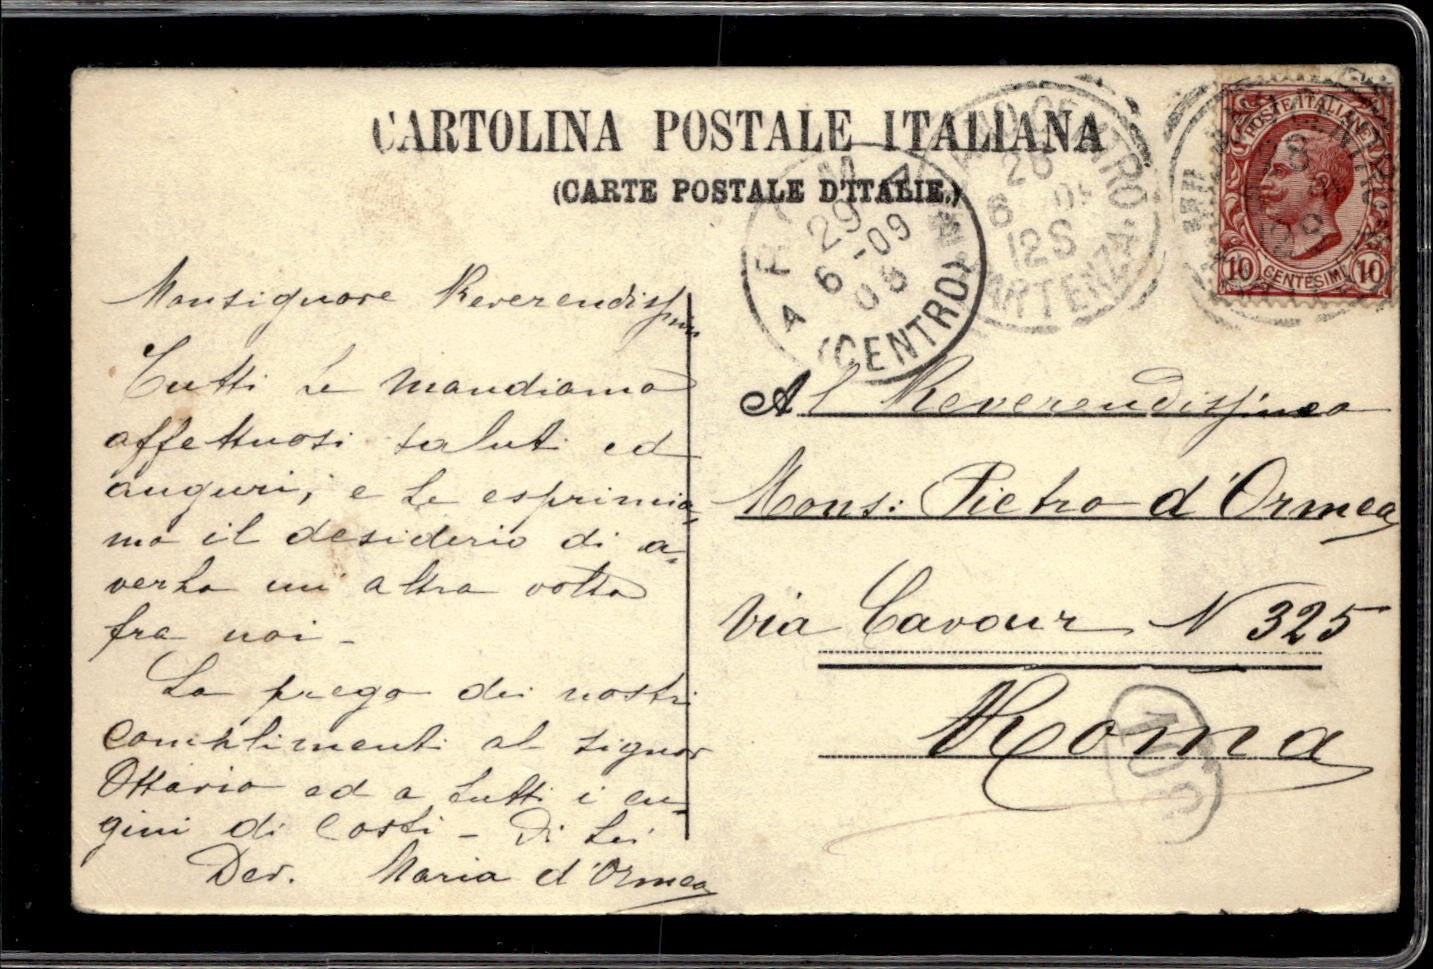 CARTOLINA POSTALE ITALIANA
(CARTE POSTALE D'ITALIE.)
POSTE ITALIANE
10 CENTESIMI 10
ROMA
29
6-09
(CENTRO)
28
6 09
12S
PARTENZA
Monsignore Reverendissimo
Tutti Le mandiamo
affettuosi saluti ed
auguri, e Le esprimia-
mo il desiderio di a-
verLa un altra volta
fra noi -
La prego dei nostri
complimenti al signor
Ottavio ed a tutti i cu-
gini di costi - Di Lei
Dev. Maria d'Ormea
Al Reverendissimo
Mons: Pietro d'Ormea
Via Cavour N 325
Roma